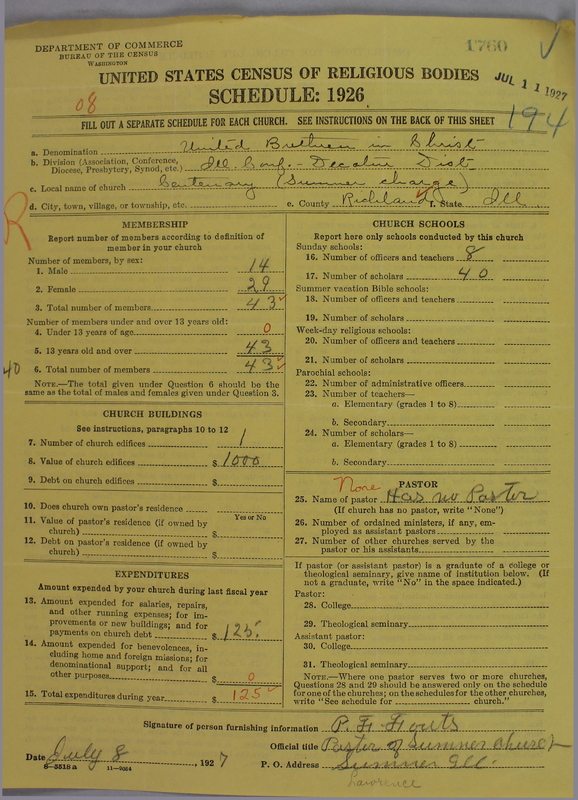 DEPARTMENT OF COMMERCE
BUREAU OF THE CENSUS
WASHINGTON
1760
UNITED STATES CENSUS OF RELIGIOUS BODIES
JUL 11 1927
SCHEDULE: 1926
08
194
FILL OUT A SEPARATE SCHEDULE FOR EACH CHURCH. SEE INSTRUCTIONS ON THE BACK OF THIS SHEET
a. Denomination United Brethren in Christ
b. Division (Association, Conference, Diocese, Presbytery, Synod, etc.) Ill. Conf. - Decatur Dist
c. Local name of church Centenary (Sumner charge)
d. City, town, village, or township, etc. e. County Richland f. State Ill
R
MEMBERSHIP
Report number of members according to definition of
member in your church
Number of members, by sex:
1. Male 14
2. Female 29
3. Total number of members 43
Number of members under and over 13 years old:
4. Under 13 years of age 0
5. 13 years old and over 43
40
6. Total number of members 43
NOTE.—The total given under Question 6 should be the
same as the total of males and females given under Question 3.
CHURCH BUILDINGS
See instructions, paragraphs 10 to 12
7. Number of church edifices 1
8. Value of church edifices $ 1000
9. Debt on church edifices $
10. Does church own pastor's residence
Yes or No
11. Value of pastor's residence (if owned by
church) $
12. Debt on pastor's residence (if owned by
church) $
EXPENDITURES
Amount expended by your church during last fiscal year
13. Amount expended for salaries, repairs,
and other running expenses; for im-
provements or new buildings; and for
payments on church debt $ 125.
14. Amount expended for benevolences, in-
cluding home and foreign missions; for
denominational support; and for all
other purposes $ 0
15. Total expenditures during year $ 125
CHURCH SCHOOLS
Report here only schools conducted by this church
Sunday schools:
16. Number of officers and teachers 8
17. Number of scholars 40
Summer vacation Bible schools:
18. Number of officers and teachers
19. Number of scholars
Week-day religious schools:
20. Number of officers and teachers
21. Number of scholars
Parochial schools:
22. Number of administrative officers
23. Number of teachers—
a. Elementary (grades 1 to 8)
b. Secondary
24. Number of scholars—
a. Elementary (grades 1 to 8)
b. Secondary
None
PASTOR
25. Name of pastor Has no Pastor
(If church has no pastor, write "None")
26. Number of ordained ministers, if any, em-
ployed as assistant pastors
27. Number of other churches served by the
pastor or his assistants
If pastor (or assistant pastor) is a graduate of a college or
theological seminary, give name of institution below. (If
not a graduate, write "No" in the space indicated.)
Pastor:
28. College
29. Theological seminary
Assistant pastor:
30. College
31. Theological seminary
NOTE.—Where one pastor serves two or more churches,
Questions 28 and 29 should be answered only on the schedule
for one of the churches; on the schedules for the other churches,
write "See schedule for church."
Signature of person furnishing information P. F. Fouts
Official title Pastor of Sumner Church
Date July 8, 1927 P. O. Address Sumner Ill.
8—5518 a 11—9564
Lawrence